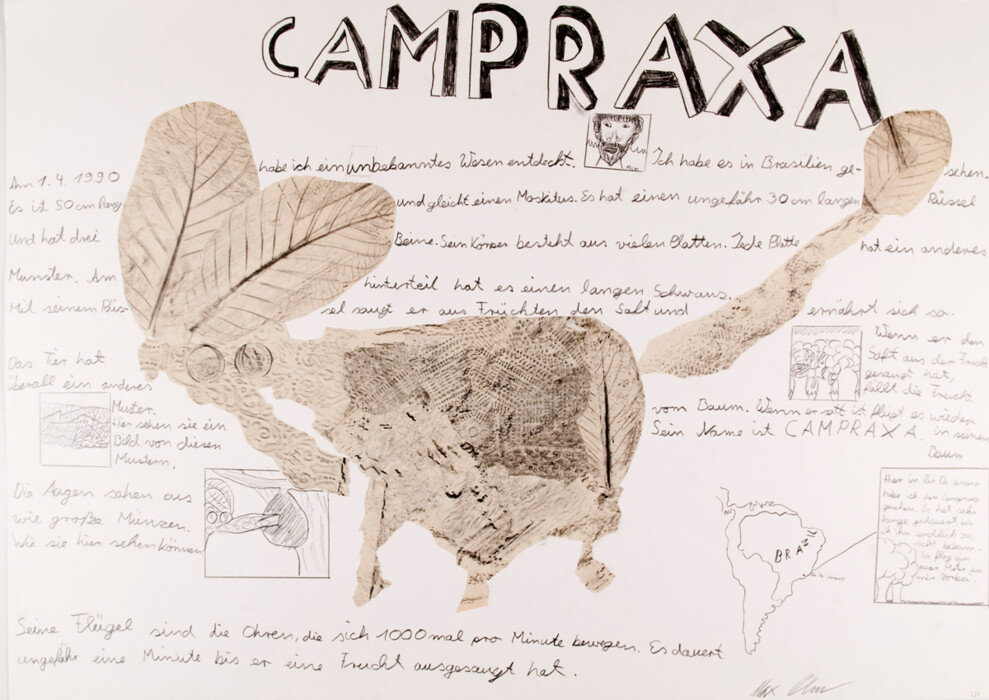 CAMPRAXA
Am 1.4.1990 habe ich ein unbekanntes Wesen entdeckt. Ich habe es in Brasilien ge- sehen.
Es ist 50 cm lang und gleicht einen Moskitus. Es hat einen ungefähr 30 cm langen Rüssel
und hat drei Beine. Sein Körper besteht aus vielen Platten. Jede Platte hat ein anderes
Munster. Am hinterteil hat es einen langen Schwanz.
Mit seinem Rüs- sel saugt er aus Früchten den Saft und ernährt sich so.
Das Tier hat
überall ein anderes
Muster.
Hier sehen sie ein
Bild von diesen
Mustern.
Die Augen sahen aus
wie große Münzen.
Wie sie hier sehen können
Wenn er den
Saft aus der Frucht
gesaugt hat,
fällt die Frucht
vom Baum. Wenn er satt ist fliegt es wieder
Sein Name ist CAMPRAXA. in seinen
Baum
BRAZIL
Hier in Rio De Janeiro
habe ich den Campraxa
gesehen. Es hat sehr
lange gedauert bis
ich ihn endlich zu
sicht bekam.
Er flog ein
paar Meter an
mir vorbei.
Seine Flügel sind die Ohren, die sich 1000 mal pro Minute bewegen. Es dauert
ungefähr eine Minute bis er eine Frucht ausgesaugt hat.
Max